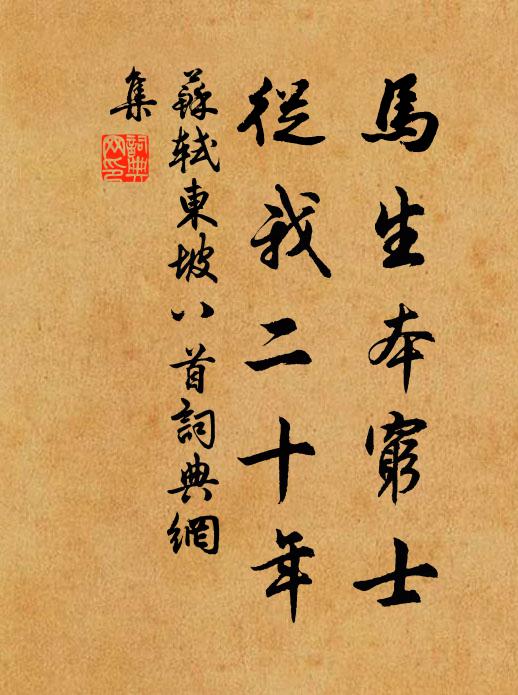 馬生本窮士
從我二十年
蘇軾東坡八首詞典網
集
詞典
网印